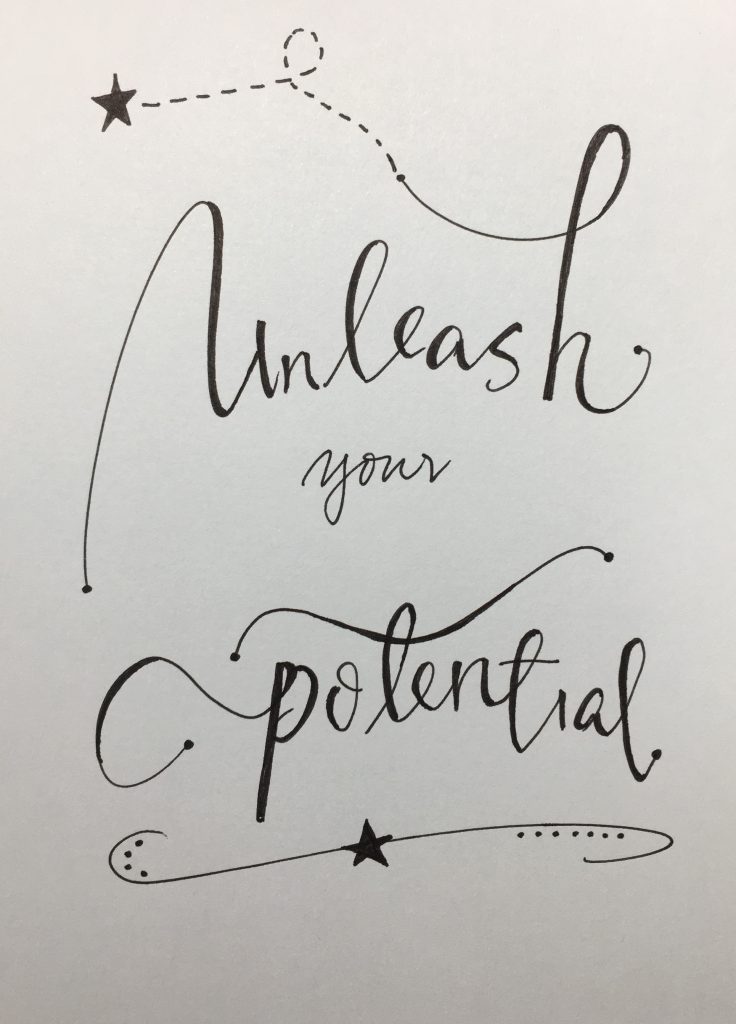 Unleash
your
potential